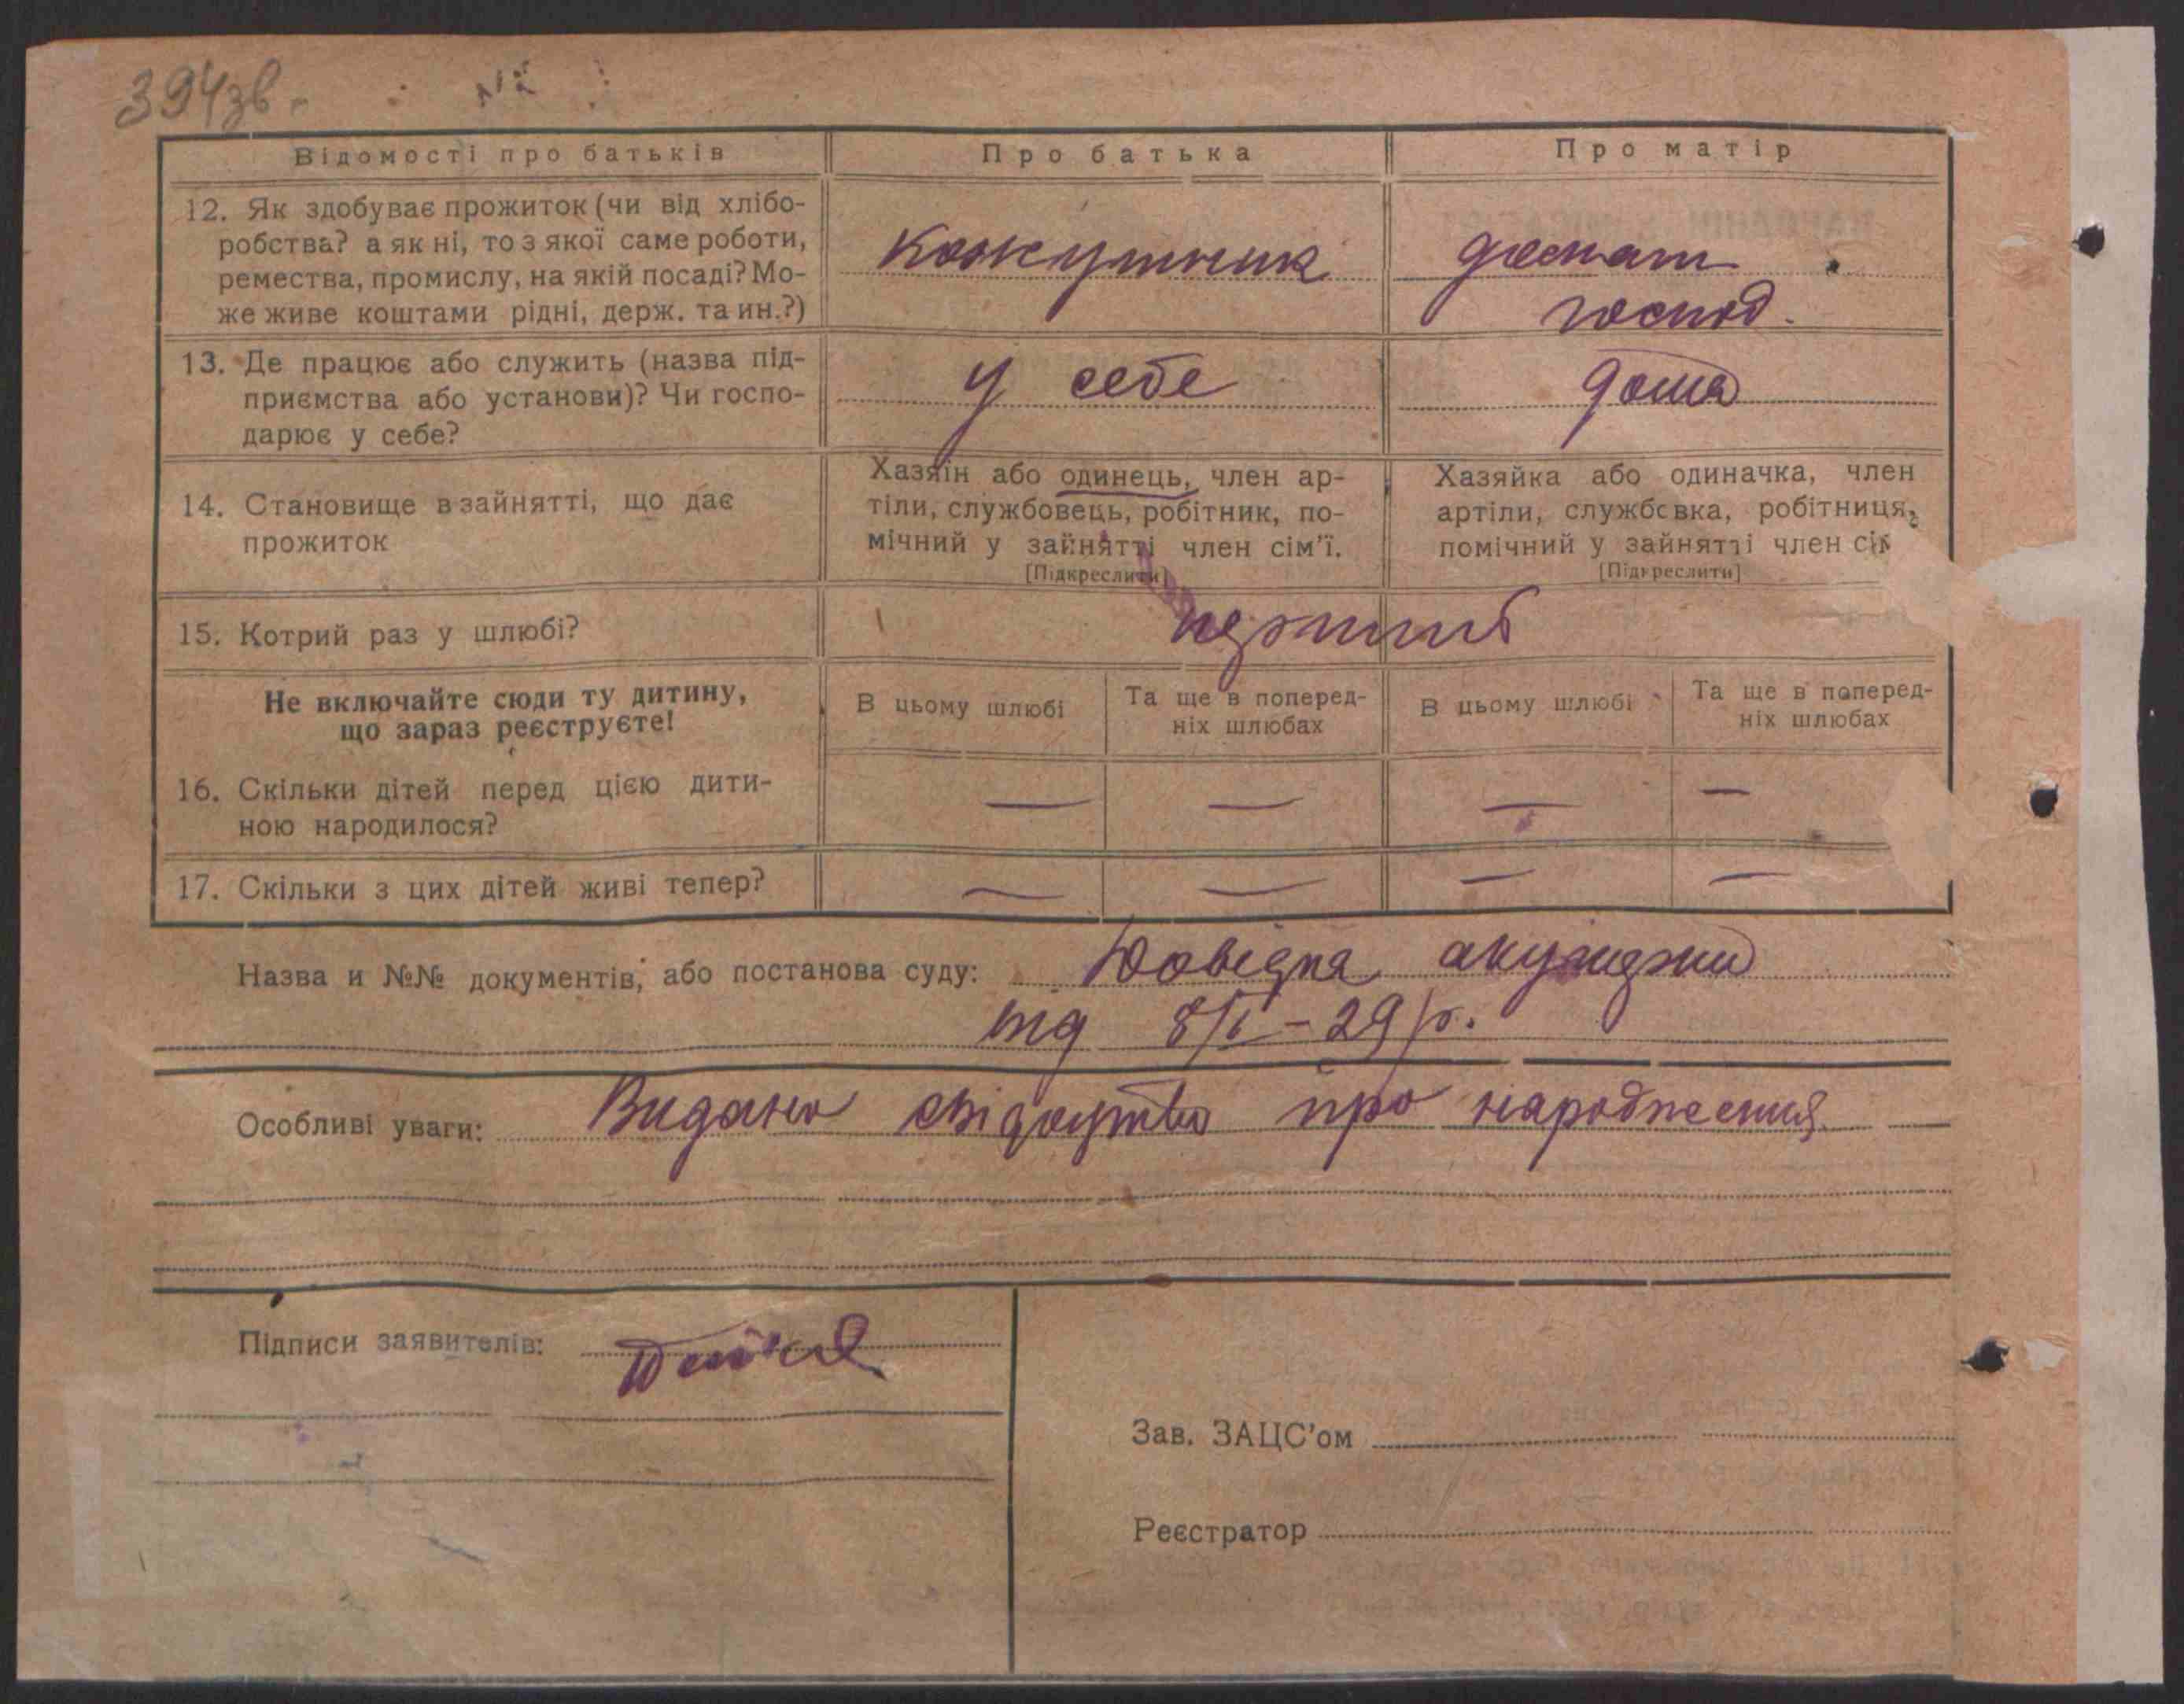 394зв.
№
Відомості про батьків
Про батька
Про матір
12. Як здобуває прожиток (чи від хлібо-
робства? а як ні, то з якої саме роботи,
ремества, промислу, на якій посаді? Мо-
же живе коштами рідні, держ. та ин.?)
кожушник
домаш
господ.
13. Де працює або служить (назва під-
приємства або установи)? Чи госпо-
дарює у себе?
у себе
дома
14. Становище в зайнятті, що дає
прожиток
Хазяїн або одинець, член ар-
тіли, службовець, робітник, по-
мічний у зайнятті член сім'ї.
[Підкреслити]
Хазяйка або одиначка, член
артіли, службовка, робітниця,
помічний у зайнятті член сім
[Підкреслити]
15. Котрий раз у шлюбі?
перший
Не включайте сюди ту дитину,
що зараз реєструєте!
В цьому шлюбі
Та ще в поперед-
ніх шлюбах
В цьому шлюбі
Та ще в поперед-
ніх шлюбах
16. Скільки дітей перед цією дити-
ною народилося?
— — — —
17. Скільки з цих дітей живі тепер?
— — — —
Назва и №№ документів, або постанова суду: Довідка акушерки
від 8/I – 29 р.
Особливі уваги: Видано свідоцтво про народження
Підписи заявителів:
Зав. ЗАЦС'ом
Реєстратор